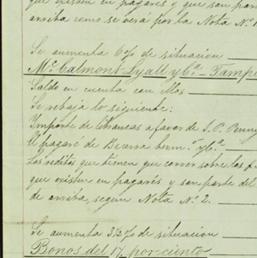 que existen en pagarés y que son par
arriba como se verá por la Nota N.º
Se aumenta 6% de situacion
Mc. Calmont Lyall y Cª. - Tampi
Saldo en cuenta con Mas
Se rebaja lo siguiente:
Importe de libranzas a favor de J. P. Penny
El pagaré de Becerra herm. y Cª.
Los réditos que tienen que correr sobre las
que existen en pagarés y son parte del
de arriba, segun Nota N.º 2.
Se aumenta 3½% de situacion
Bonos del 17 por ciento